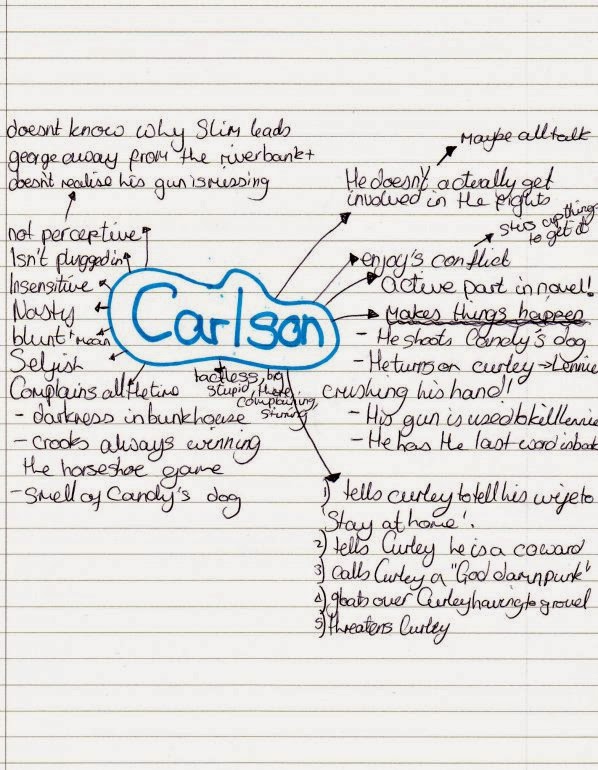 doesnt know why Slim leads
george away from the riverbank +
doesn't realise his gun is missing
not perceptive
Isn't plugged in
Insensitive
Nasty
blunt + mean
Selfish
Complains all the time
- darkness in bunkhouse
- crooks always winning
the horseshoe game
- Smell of Candy's dog
Carlson
tactless, big
stupid, there,
complaining,
stirring
Maybe all talk
He doesn't actually get
involved in the fights
stirs up things
to get it
enjoy's conflict
Active part in novel!
Makes things happen
- He shoots Candy's dog
- He turns on curley → Lennie
crushing his hand!
- His gun is used to kill lennie
- He has the last word
1) tells curley to tell his wife to
'Stay at home'.
2) tells Curley he is a coward
3) calls Curley a "God damn punk"
4) gloats over Curley having to grovel
5) threatens Curley